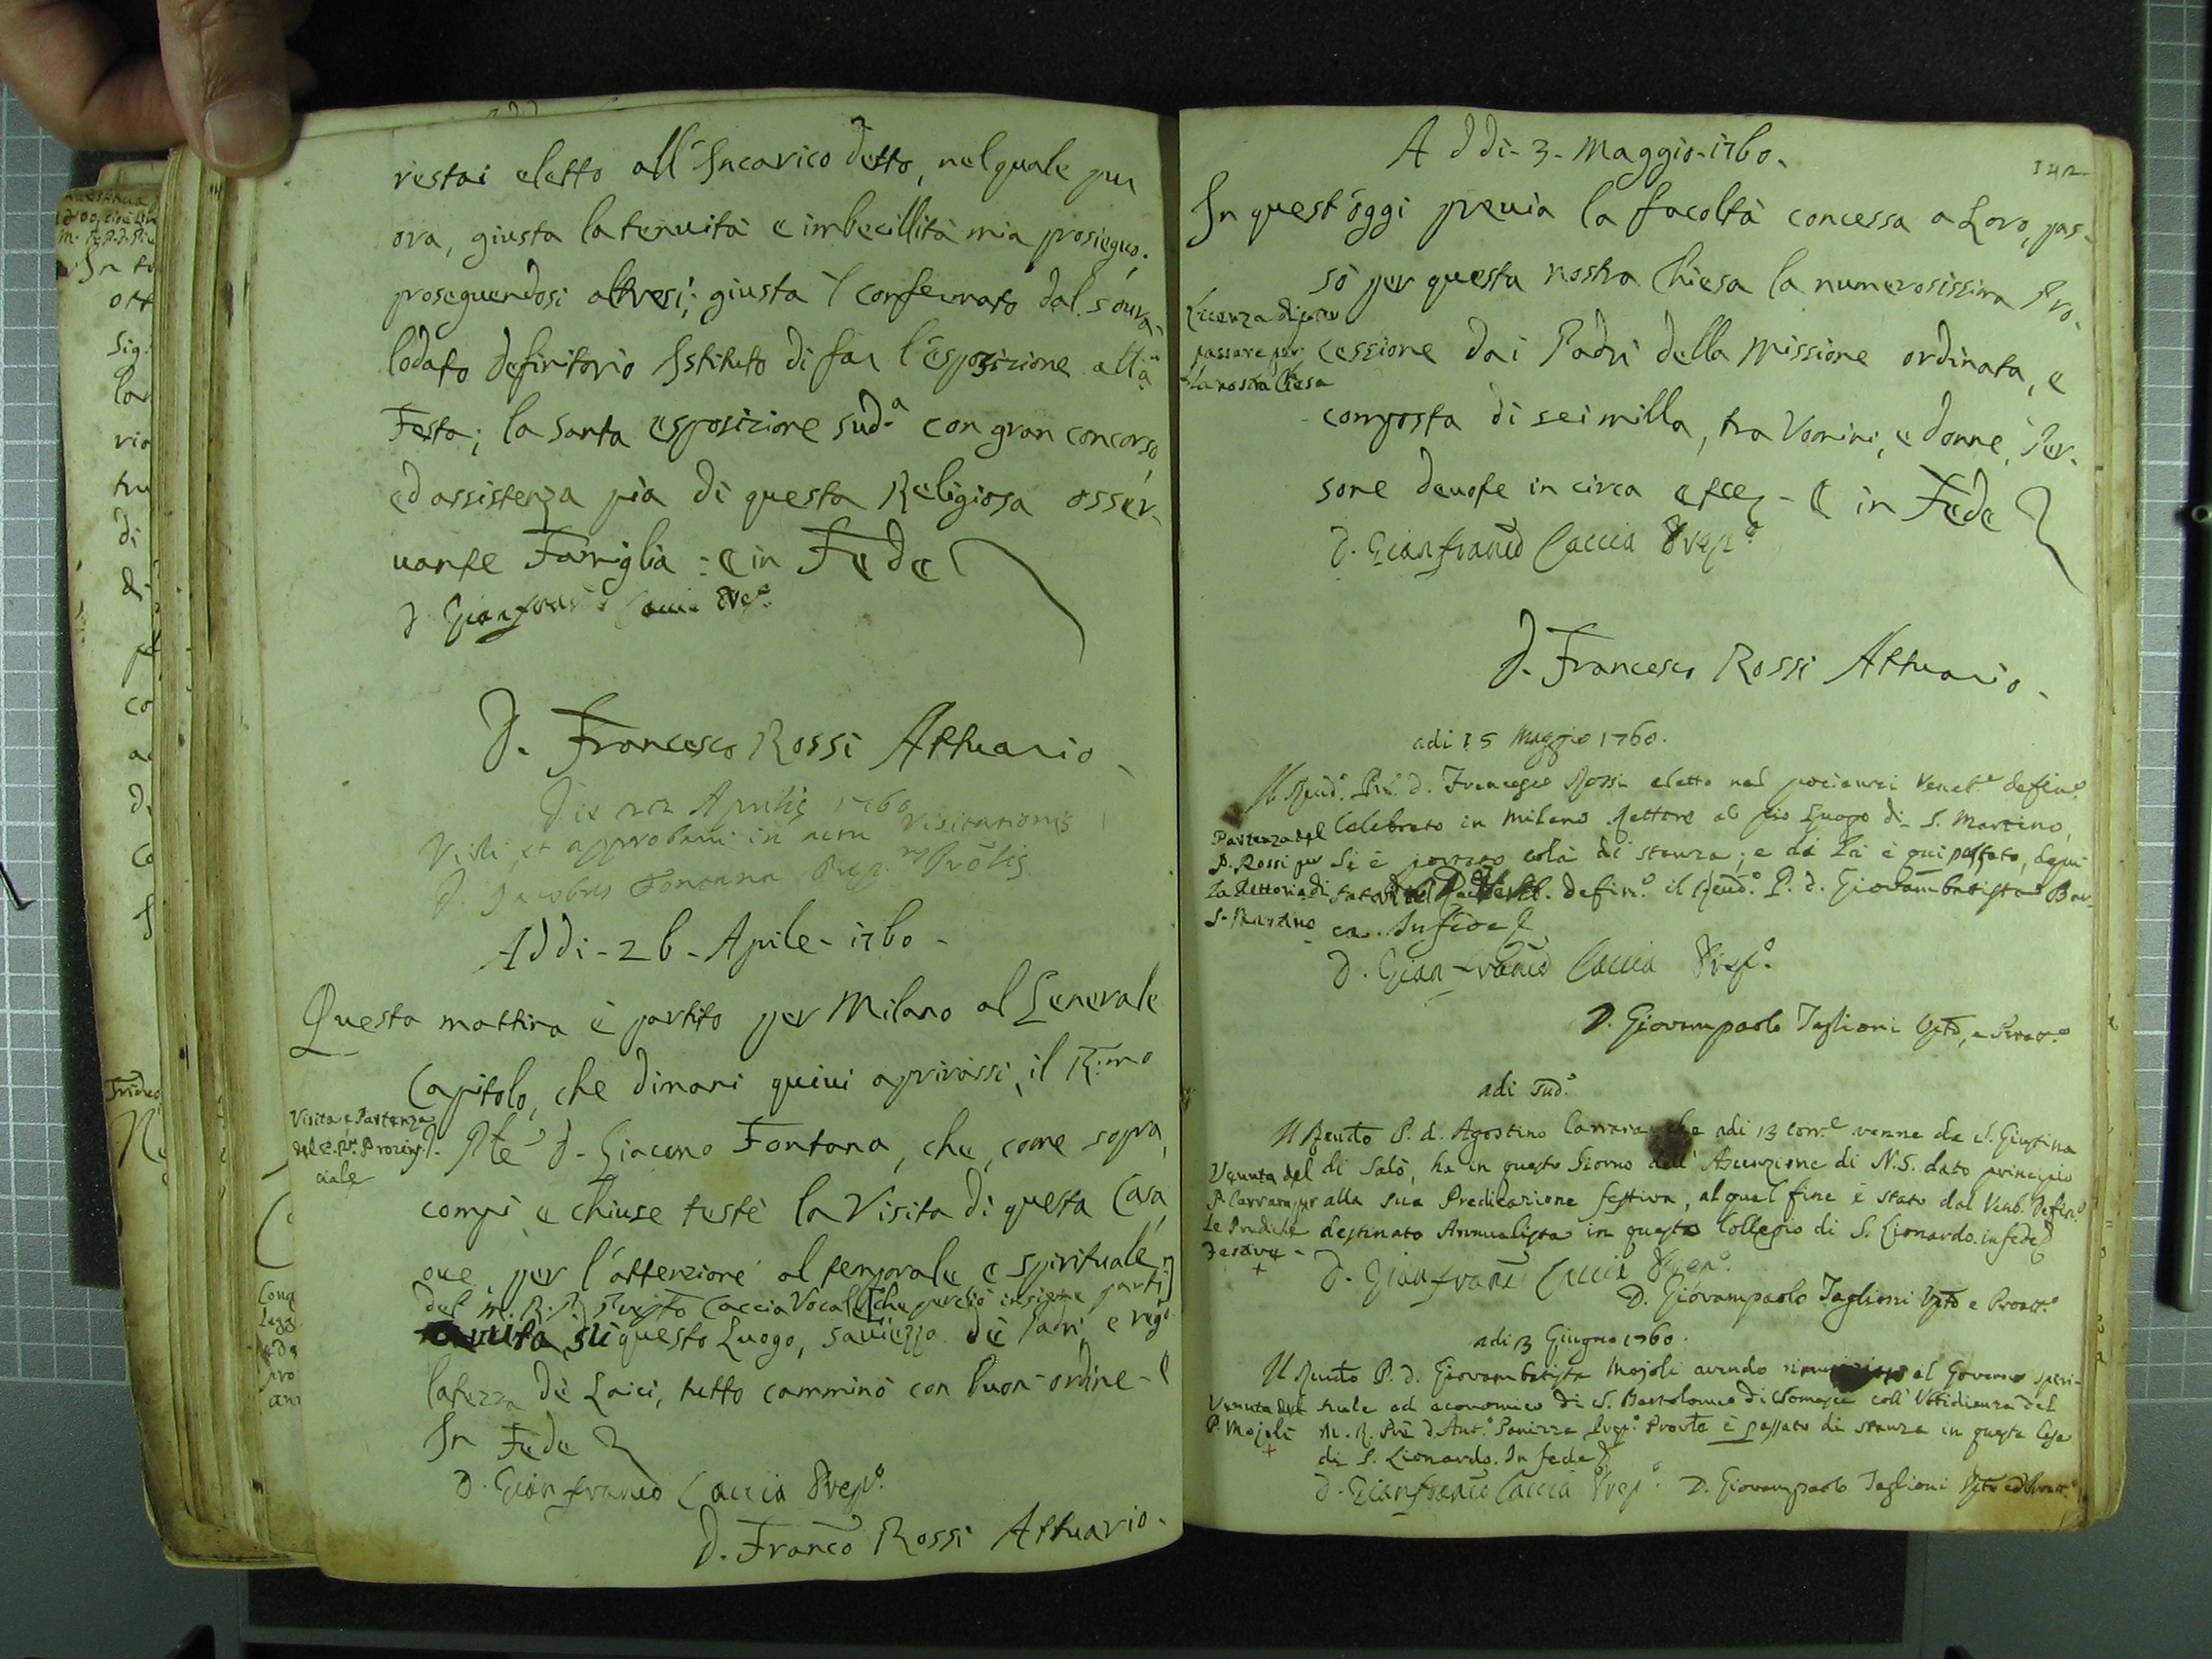 restai eletto all'Incarico detto, nel quale pur
ora, giusta la tenuità e imbecillità mia prosieguo.
proseguendosi altresi; giusta l'confermato dal sovra
lodato Definitorio Istituto di far l'Esposizione alla
Festa; la Santa esposizione sud.a con gran concorso,
ed assistenza pia di questa Religiosa osser-
vante Famiglia - e in Fede
D. Gianfran.co Caccia Prep.o
D. Francesco Rossi Attuario -
Die 22 Aprilis 1760
Vidi, et approbavi in actu Visitationis
D. Jacobus Fontana Prep. Prõlis
Addi - 26 - Aprile - 1760 -
Questa mattina è partito per Milano al Generale
Capitolo, che dimani quivi aprirassi, il R.mo
Visita e Partenza
del P. Provin-
ciale
Pre D. Giacomo Fontana, che, come sopra,
compì e chiuse testè la Visita di questa Casa,
ove, per l'attenzione al temporale, e spirituale
del M. R. P. Prepto Caccia Vocale [che perciò insieme partì]
di questo Luogo, saviezza dè Padri, e rego-
latezza dè Laici, tutto camminò con buon-ordine - e
In Fede
D. Gianfranco Caccia Prep.o
D. Franco Rossi Attuario -
142
Addi - 3 - Maggio - 1760 -
In quest'oggi previa la facoltà concessa a Loro, pas-
sò per questa nostra Chiesa la numerosissima Pro-
Licenza di
passare per
la nostra Chiesa
cessione dai Padri della Missione ordinata, e
composta di sei milla, tra Uomini, e donne, Per-
sone devote in circa - e in Fede
D. Gianfranco Caccia Prep.o
D. Francesco Rossi Attuario -
adi 15 Maggio 1760.
Il Reud.o Pre. D. Francesco Rossi eletto nel Vener.e defin.o
celebrato in Milano Rettore al pio Luogo di S. Martino,
Partenza del
P. Rossi per
la Rettoria di
S. Martino
si è portato colà di stanza; e da là è qui passato,
defin.o il Reud.o P. D. Giovambatista Bar-
ca. In fede
D. Gianfranco Caccia Prep.o
D. Giovampaolo Taglioni Vpto, e Proatt.o
adi sud.o
Il Reudo P. d. Agostino Carrara che adi 13 corr.e venne da S. Giustina
Venuta del
P. Carrara per
le Prediche
Festive -
di Salò, ha in questo Giorno dell'Ascenzione di N.S. dato principio
alla sua Predicazione festiva, al qual fine è stato dal Venb. Defin.o
destinato Annualista in questo Collegio di S. Lionardo. in fede
D. Gianfranco Caccia Prep.o
D. Giovampaolo Taglioni Vpto e Proatt.o
adi 13 Giugno 1760.
Il Reudo P. D. Giovambatista Mojoli avendo al Governo spiri-
Venuta del
P. Mojoli
tuale ed economico di S. Bartolomeo di Somasca coll'Ubbidienza del
M. R. Pre D. Ant.o Panizza Prep.o Provle è passato di stanza in questa Casa
di S. Lionardo. In fede
D. Gianfranco Caccia Prep.o D. Giovampaolo Taglioni Vpto ed Proatt.o